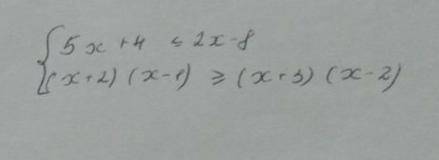 5x + 4 ≤ 2x - 8
(x + 2) (x - 1) ≥ (x + 3) (x - 2)